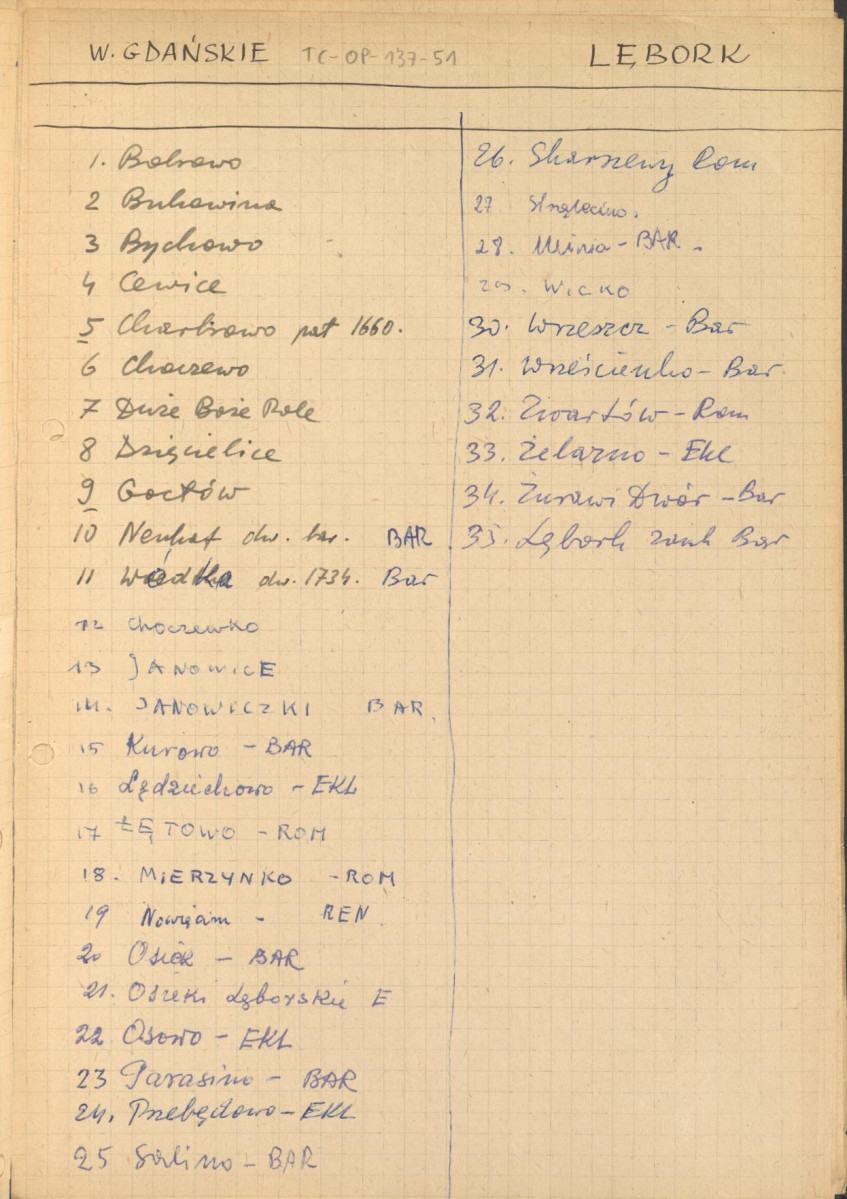 W. GDAŃSKIE TC-OP-137-51 LĘBORK
1. Bobrowo
2 Bukowina
3 Bychowo
4 Cewice
5 Charbrowo pat 1660.
6 Choczewo
7 Duże Boże Pole
8 Dzięcielice
9 Goctów
10 Neuhof dw. bar. BAR
11 Wódka dw. 1734. Bar
12 Choczewko
13 JANOWICE
14. JANOWICZKI BAR.
15 Kurowo - BAR
16 Lędziechowo - EKL
17 ŁĘTOWO - ROM
18. MIERZYNKO - ROM
19 - REN
20 Osiek - BAR
21. Osieki Lęborskie E
22 Osowo - EKL
23 Parasino - BAR
24. Przebędowo - EKL
25 Salino - BAR
26. Skarszewy Rom
27 Strzelecino.
28. - BAR.
29. WICKO
30. Wrzeszcz - Bar
31. Wrześcienko - Bar.
32. Zwartów - Rom
33. Żelazno - Ekl
34. Żurawi Dwór - Bar
35. Lębork zamk Bar